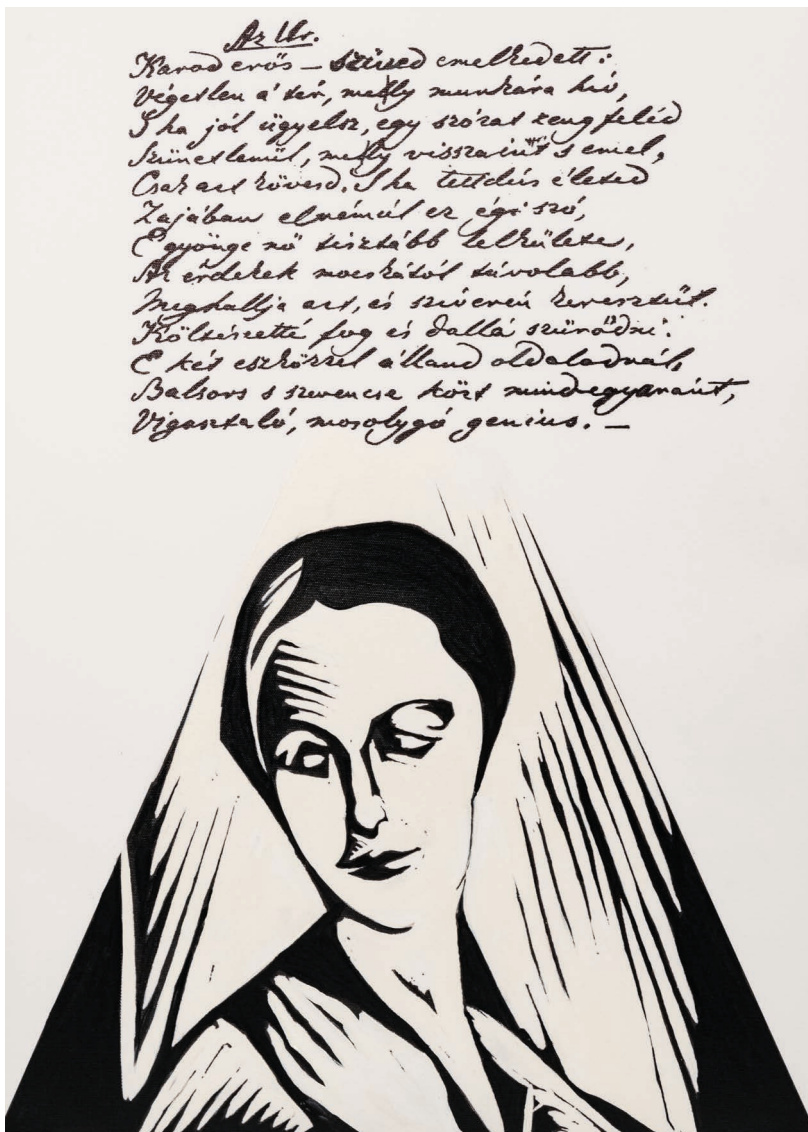 Az Úr.
Karod erős – szived emelkedett:
Végetlen a' tér, melly munkára hív,
S ha jól ügyelsz, egy szózat zeng feléd
Szünetlenűl, melly visszaint s emel,
Csak azt kövesd. S ha tettdús életed
Zajában elnémúl ez égi szó,
E gyönge nő tisztább lelkülete,
Az érdekek mocskától távolabb,
Meghallja azt, és szíverén keresztűl.
Költészetté fog és dallá szűrődni.
E két eszközzel álland oldaladnál,
Balsors s szerencse közt mindegyaránt,
Vigasztaló, mosolygó genius. –